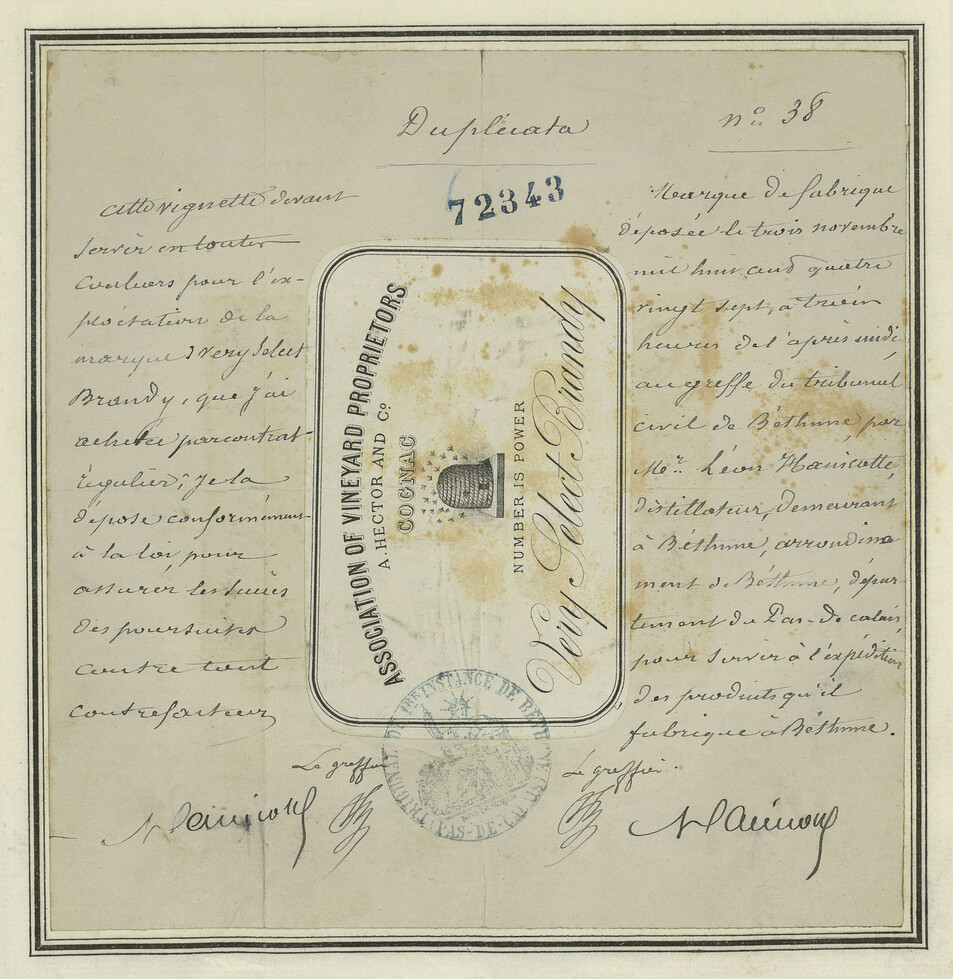 Duplicata
n° 38
72343
cette vignette devant
servir en toutes
couleurs pour l'ex-
ploitation de la
marque Very Select
Brandy, que j'ai
achetée par contrat
régulier; je la
dépose conformément
à la loi pour
assurer les suites
des poursuites
contre tout
contrefacteur
ASSOCIATION OF VINEYARD PROPRIETORS
A. HECTOR AND Co.
COGNAC
NUMBER IS POWER
Very Select Brandy
Marque de fabrique
déposée le trois novembre
mil huit cent quatre
vingt sept, à trois
heures de l'après midi
au greffe du tribunal
civil de Béthune, par
Mr. Léon Hanicotte,
distillateur, demeurant
à Béthune, arrondisse
ment de Béthune, dépar-
tement du Pas-de calais,
pour servir à l'expédition
des produits qu'il
fabrique à Béthune.
Le greffier
Le greffier.
TRIBUNAL DE 1RE INSTANCE DE BÉTHUNE
(PAS-DE-CALAIS)